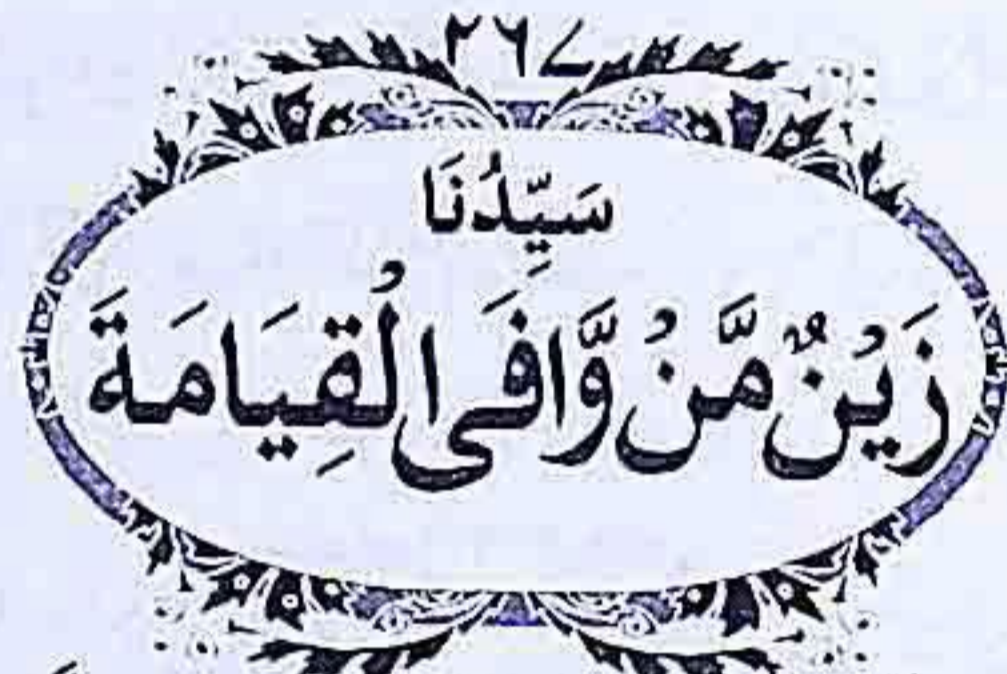 ٢٦٧
سَيِّدُنَا
زَيْنٌ مَّنْ وَّافَى الْقِيَامَةَ